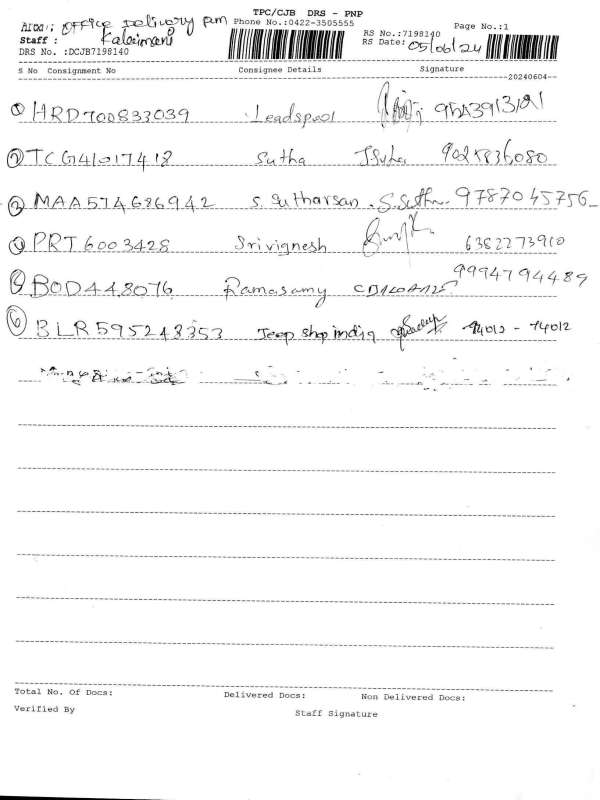 TPC/CJB DRS - PNP
Area: Office Delivery pm Phone No.:0422-3505555 RS No.:7198140 Page No.:1
Staff : Kalaimani RS Date: 05/06/24
DRS No. :DCJB7198140
S No Consignment No Consignee Details Signature
--20240604--
1 HRD700833039 Leadspool
2 TCG41017418 Sutha
3 MAA574686942 S. Sutharsan S.Sutha 9787045756
4 PRT6003428 Srivignesh 6382273910
5 BOD448076 Ramasamy 9994794489
6 BLR595248353 Jeep shop india 94012 - 74012
Total No. Of Docs: Delivered Docs: Non Delivered Docs:
Verified By Staff Signature